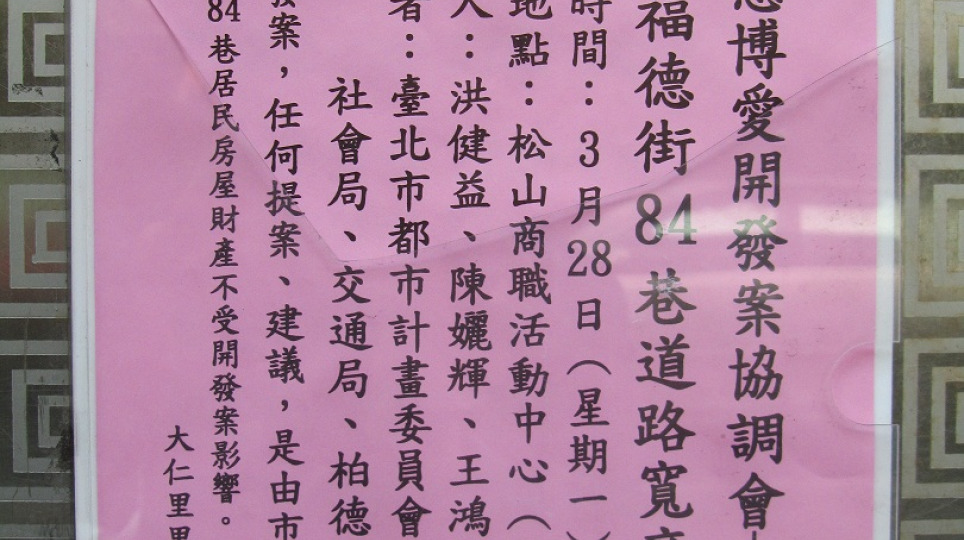 博愛開發案協調會
福德街84巷道路寬
時間：3月28日（星期一）
地點：松山商職活動中心（
人：洪健益、陳孋輝、王鴻
者：臺北市都市計畫委員會
社會局、交通局、柏德
案，任何提案、建議，是由市
84巷居民房屋財產不受開發案影響。
大仁里